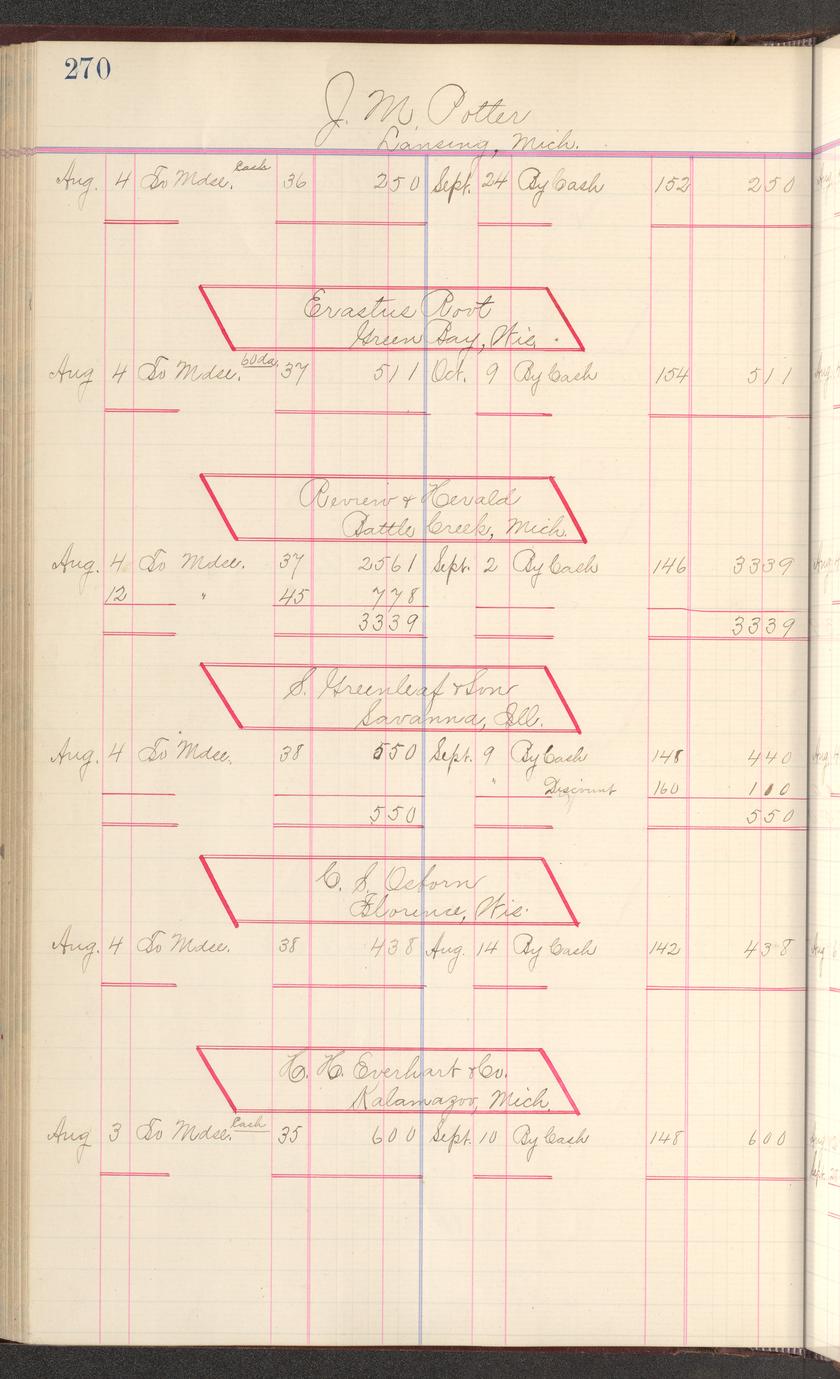 270
J. M. Potter
Lansing, Mich.
Aug. 4 To Mdse. Cash 36 250 Sept. 24 By Cash 152 250
Erastus Root
Green Bay, Wis.
Aug 4 To Mdse. 60 da. 37 511 Oct. 9 By Cash 154 511
Review & Herald
Battle Creek, Mich.
Aug. 4 To Mdse. 37 2561 Sept. 2 By Cash 146 3339
12 " 45 778
3339 3339
S. Greenleaf & Son
Savanna, Ill.
Aug. 4 To Mdse. 38 550 Sept. 9 By Cash 148 440
" Discount 160 110
550 550
C. S. Osborn
Florence, Wis.
Aug. 4 To Mdse. 38 438 Aug. 14 By Cash 142 438
H. H. Everhart & Co.
Kalamazoo, Mich.
Aug 3 To Mdse. Cash 35 600 Sept. 10 By Cash 148 600